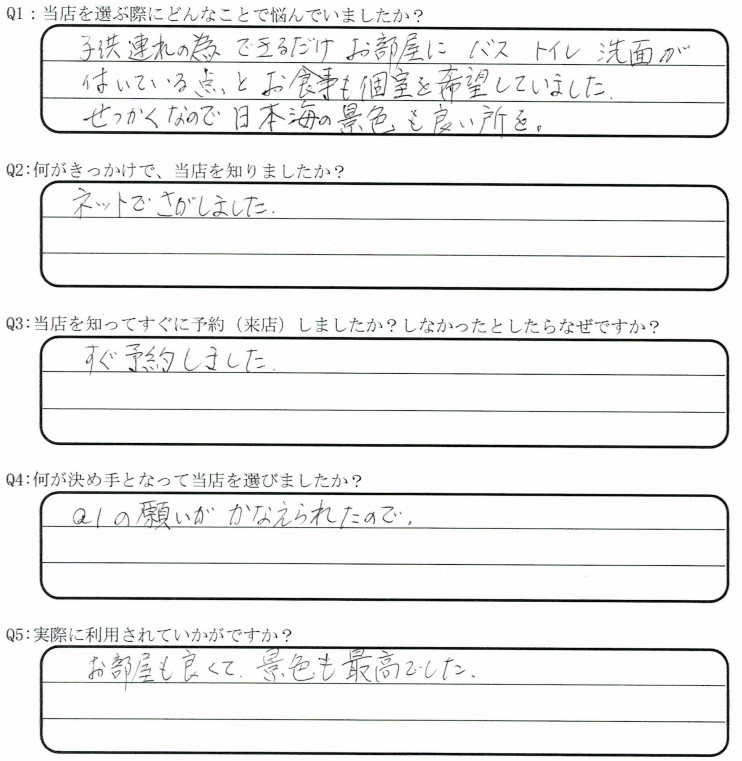 Q1：当店を選ぶ際にどんなことで悩んでいましたか？
子供連れの為 できるだけ お部屋に バス トイレ 洗面が
付いている点、と お食事も個室を希望していました。
せっかくなので 日本海の景色も良い所を。
Q2:何がきっかけで、当店を知りましたか？
ネットでさがしました。
Q3:当店を知ってすぐに予約（来店）しましたか？しなかったとしたらなぜですか？
すぐ予約しました。
Q4:何が決め手となって当店を選びましたか？
Q1の願いが かなえられたので。
Q5:実際に利用されていかがですか？
お部屋も良くて、景色も最高でした。